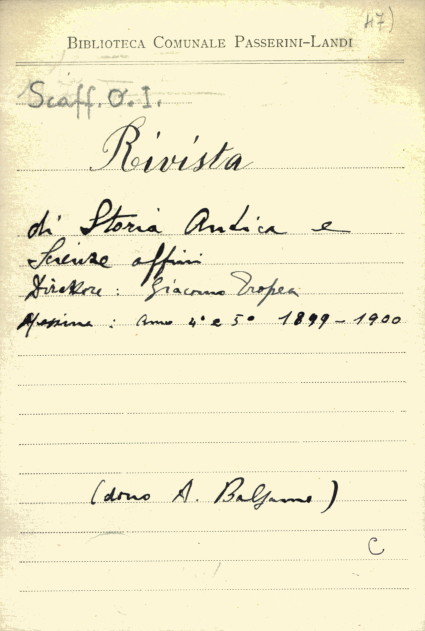 47)
BIBLIOTECA COMUNALE PASSERINI-LANDI
Scaff. O. I.
Rivista
di Storia Antica e
Scienze affini
Direttore: Giacomo Tropea
Messina: Anno 4° e 5° 1899-1900
(dono A. Balsamo)
C